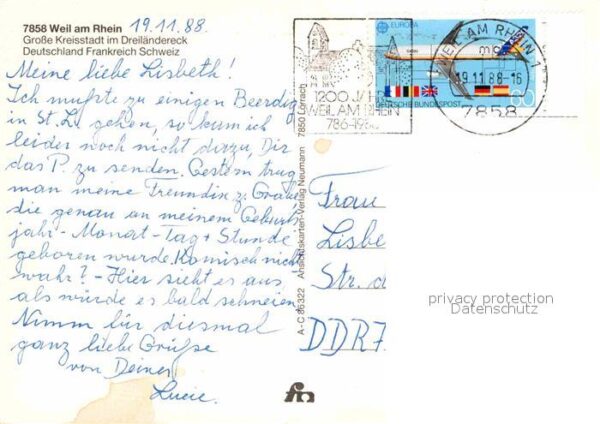 7858 Weil am Rhein 19.11.88.
Große Kreisstadt im Dreiländereck
Deutschland Frankreich Schweiz
Meine liebe Lisbeth!
Ich mußte zu einigen Beerdig
in St.Lu gehen, so kam ich
leider noch nicht dazu, Dir
das P. zu senden. Gestern trug
man meine Freundin z. Grabe
die genau an meinem Geburts
jahr-Monat-Tag + Stunde
geboren wurde. Komisch nicht
wahr? - Hier sieht es aus
als würde es bald schneien.
Nimm für diesmal
ganz liebe Grüße
von Deiner
Lucie.
A-C 86322 Ansichtskarten-Verlag Neumann 7850 Lörrach
1200 JA
WEIL AM RHEIN
786-19
EUROPA
DEUTSCHE BUNDESPOST
60
WEIL AM RHEIN 1
mc
19.11.88-16
7858
Frau
Lisbe
Str. d
DDR7
privacy protection
Datenschutz